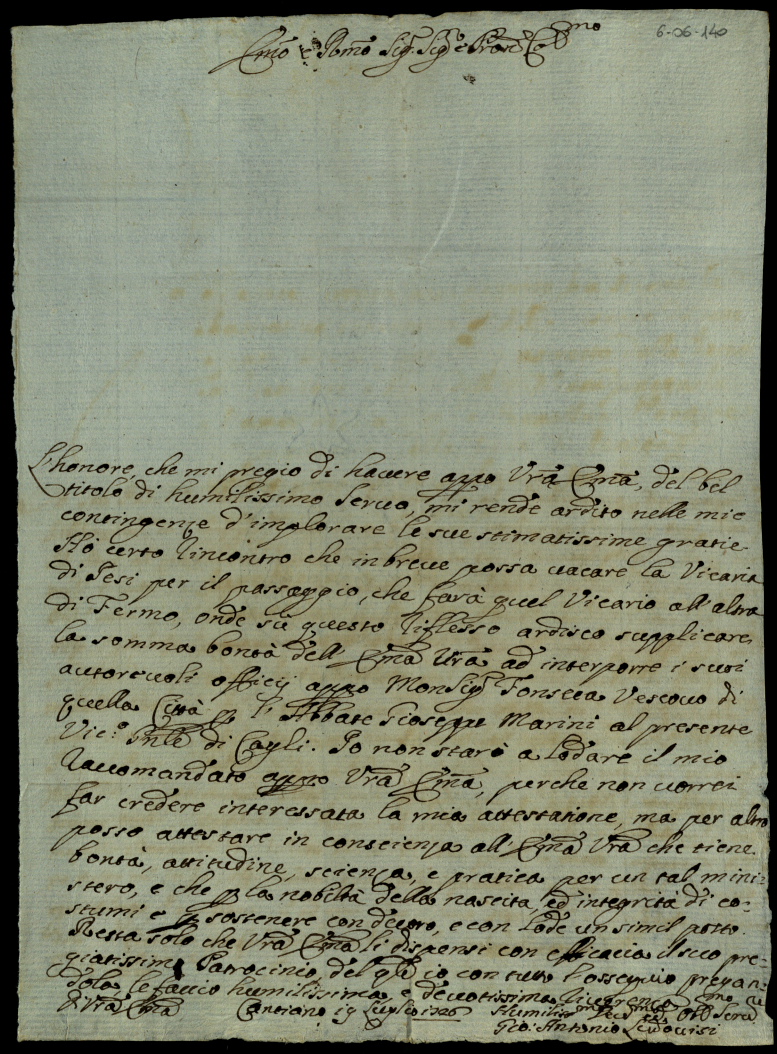 6-06-140
Emo e Rmo Sigr Sigr e Pron Col mo
L'honore, che mi pregio di havere appo Vrã Emã, del bel
titolo di humilissimo servo, mi rende ardito nelle mie
contingenze d'implorare le sue stimatissime gratie.
Hò certo l'incontro che in breve possa vacare la Vicaria
di Jesi per il passaggio, che farà quel Vicario all'altra
di Fermo, onde sù questo riflesso ardisco supplicare
la somma bontà dell'Emã Vrã ad interporre i suoi
autorevoli officij appo Monsigr Fonseca Vescovo di
quella Città p l'Abbate Gioseppe Marini al presente
Vic.o Gnle di Cagli. Io non starò a lodare il mio
raccomandato appo Vrã Emã, perche non vorrei
far credere interessata la mia attestatione, ma per altro
posso attestare in conscienza all'Emã Vrã che tiene
bontà, attitudine, scienza, e pratica per un tal mini-
stero, e che p la nobiltà della nascita, ed integrità di co-
stumi è p sostenere con decoro, e con lode un simil posto.
Resta solo che Vrã Emã li dispensi con efficacia il suo pre-
giatissimo Patrocinio, del qle io con tutto l'ossequio pregan-
dola le faccio humilissima, e devotissima riverenza
di Vrã Emã Cantiano 19 Luglio 1726 Humilis mo Obb Serv
Gio: Antonio Ludovisi